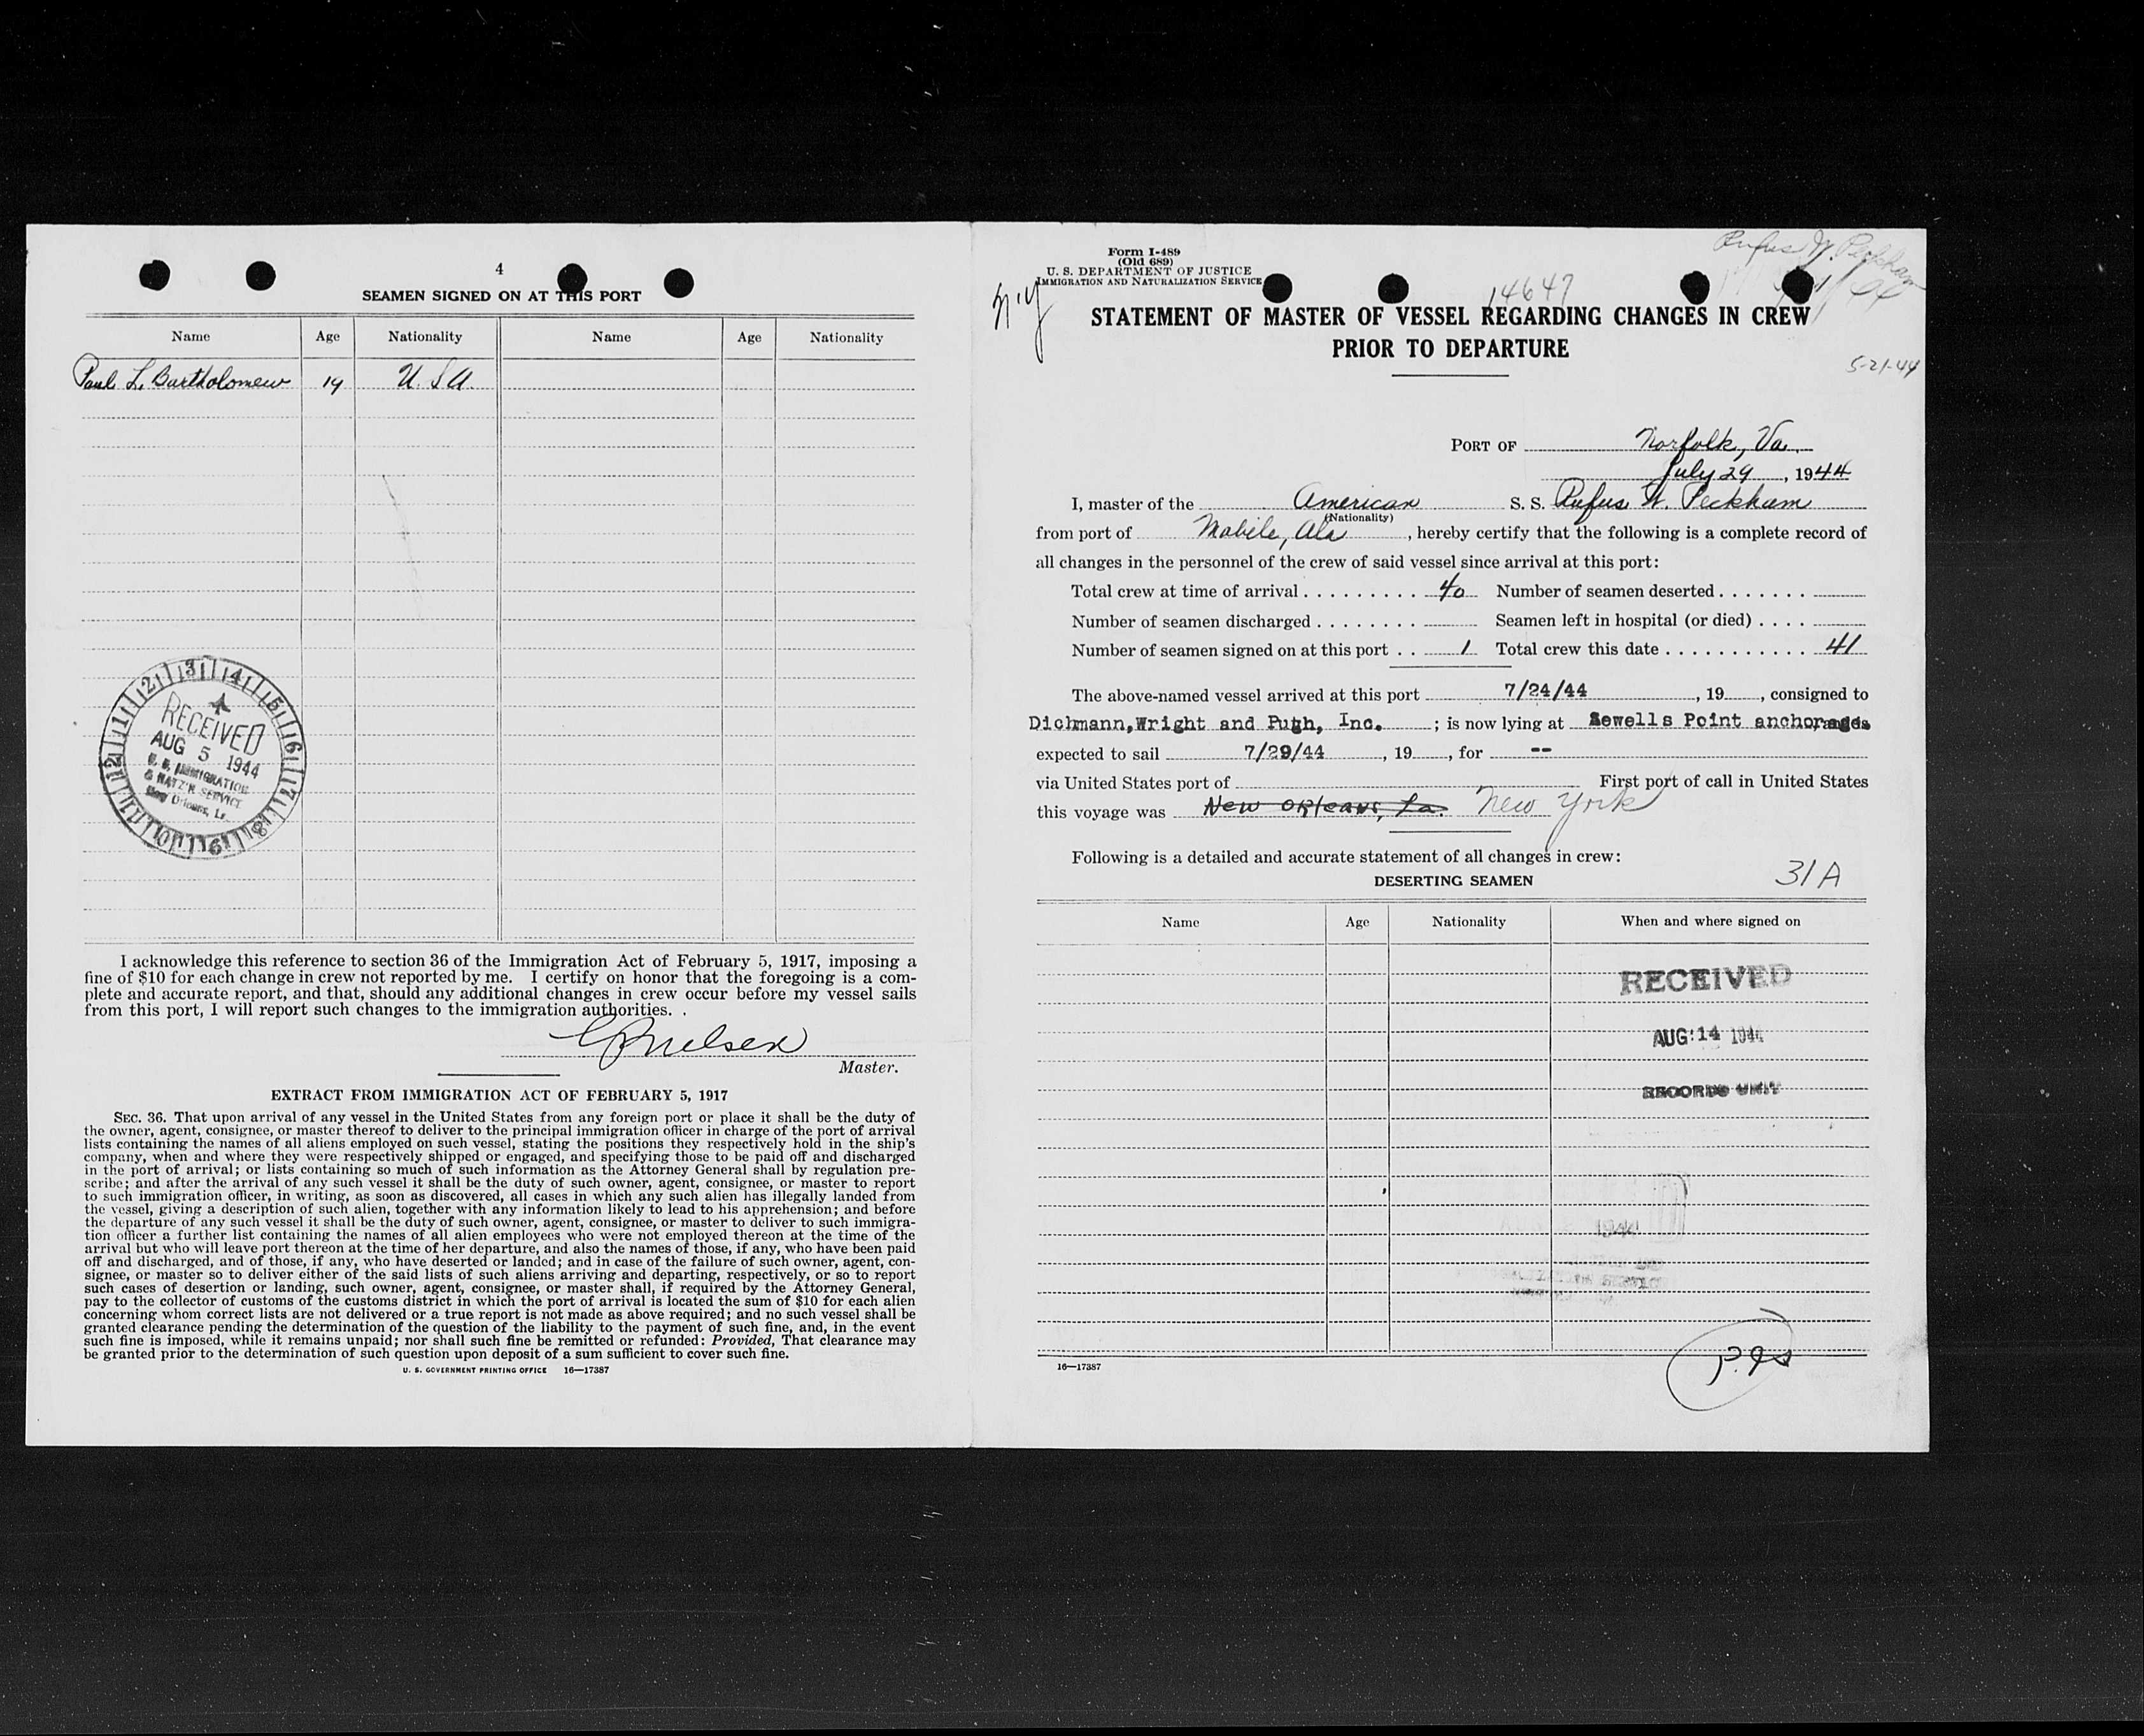 4
SEAMEN SIGNED ON AT THIS PORT
Name Age Nationality Name Age Nationality
Paul L. Bartholomew 19 U.S.A.
1 2 3 4 5 6 7 8 9 10 11 12
RECEIVED
AUG 5 1944
U. S. IMMIGRATION
& NATZ'N SERVICE
New Orleans, La.
I acknowledge this reference to section 36 of the Immigration Act of February 5, 1917, imposing a
fine of $10 for each change in crew not reported by me. I certify on honor that the foregoing is a com-
plete and accurate report, and that, should any additional changes in crew occur before my vessel sails
from this port, I will report such changes to the immigration authorities.
Master.
EXTRACT FROM IMMIGRATION ACT OF FEBRUARY 5, 1917
SEC. 36. That upon arrival of any vessel in the United States from any foreign port or place it shall be the duty of
the owner, agent, consignee, or master thereof to deliver to the principal immigration officer in charge of the port of arrival
lists containing the names of all aliens employed on such vessel, stating the positions they respectively hold in the ship's
company, when and where they were respectively shipped or engaged, and specifying those to be paid off and discharged
in the port of arrival; or lists containing so much of such information as the Attorney General shall by regulation pre-
scribe; and after the arrival of any such vessel it shall be the duty of such owner, agent, consignee, or master to report
to such immigration officer, in writing, as soon as discovered, all cases in which any such alien has illegally landed from
the vessel, giving a description of such alien, together with any information likely to lead to his apprehension; and before
the departure of any such vessel it shall be the duty of such owner, agent, consignee, or master to deliver to such immigra-
tion officer a further list containing the names of all alien employees who were not employed thereon at the time of the
arrival but who will leave port thereon at the time of her departure, and also the names of those, if any, who have been paid
off and discharged, and of those, if any, who have deserted or landed; and in case of the failure of such owner, agent, con-
signee, or master so to deliver either of the said lists of such aliens arriving and departing, respectively, or so to report
such cases of desertion or landing, such owner, agent, consignee, or master shall, if required by the Attorney General,
pay to the collector of customs of the customs district in which the port of arrival is located the sum of $10 for each alien
concerning whom correct lists are not delivered or a true report is not made as above required; and no such vessel shall be
granted clearance pending the determination of the question of the liability to the payment of such fine, and, in the event
such fine is imposed, while it remains unpaid; nor shall such fine be remitted or refunded: Provided, That clearance may
be granted prior to the determination of such question upon deposit of a sum sufficient to cover such fine.
U. S. GOVERNMENT PRINTING OFFICE 16—17387
Form I-489
(Old 689)
U. S. DEPARTMENT OF JUSTICE
IMMIGRATION AND NATURALIZATION SERVICE
Rufus W. Peckham
14647
STATEMENT OF MASTER OF VESSEL REGARDING CHANGES IN CREW
PRIOR TO DEPARTURE
5-21-44
PORT OF Norfolk, Va.
July 29, 1944
I, master of the American S. S. Rufus W. Peckham
(Nationality)
from port of Mobile, Ala, hereby certify that the following is a complete record of
all changes in the personnel of the crew of said vessel since arrival at this port:
Total crew at time of arrival . . . . . . . . . 40 Number of seamen deserted . . . . . . .
Number of seamen discharged . . . . . . . . Seamen left in hospital (or died) . . . .
Number of seamen signed on at this port . . 1 Total crew this date . . . . . . . . . . . 41
The above-named vessel arrived at this port 7/24/44, 19, consigned to
Dichmann,Wright and Pugh, Inc. ; is now lying at Sewells Point anchorage
expected to sail 7/29/44, 19, for --
via United States port of First port of call in United States
this voyage was New Orleans, La. New York
Following is a detailed and accurate statement of all changes in crew:
31A
DESERTING SEAMEN
Name Age Nationality When and where signed on
RECEIVED
AUG 14 1944
RECORDS UNIT
1944
16—17387